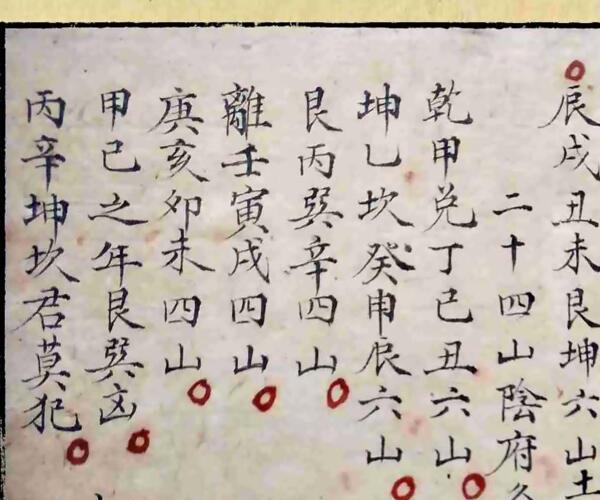 辰戌丑未艮坤六山土
二十四山陰府
乾甲兑丁巳丑六山
坤乚坎癸申辰六山
艮丙巽辛四山
離壬寅戌四山
庚亥卯未四山
甲己之年艮巽凶
丙辛坤坎君莫犯